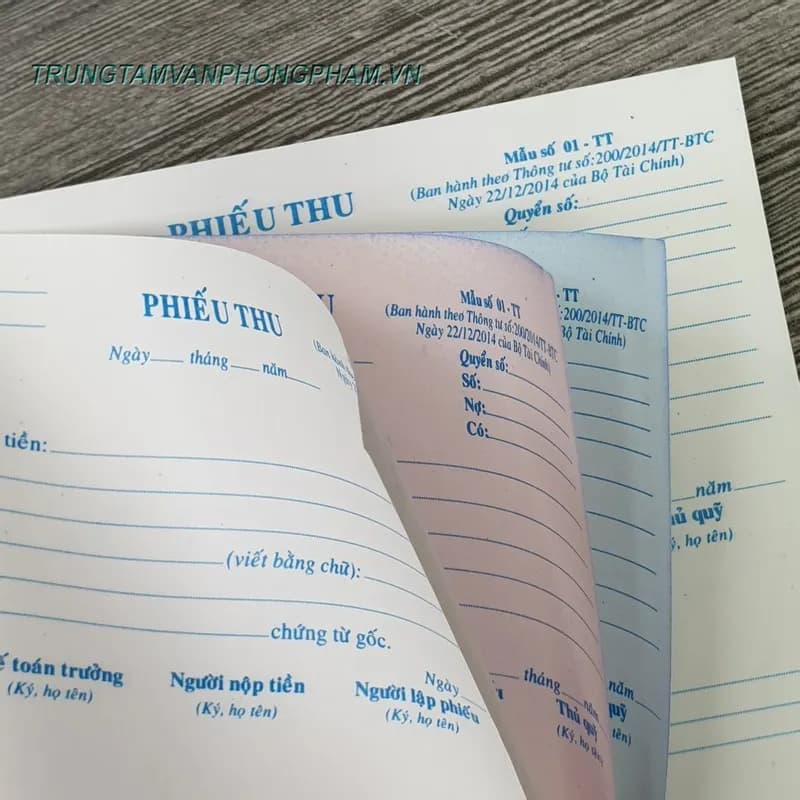 TRUNGTAMVANPHONGPHAM.VN
Mẫu số 01 - TT
(Ban hành theo Thông tư số:200/2014/TT-BTC
Ngày 22/12/2014 của Bộ Tài Chính)
PHIẾU THU
Quyển số:
năm
Thủ quỹ
(Ký, họ tên)
TT
số:200/2014/TT-BTC
Bộ Tài Chính)
năm
quỹ
tên)
THU
Mẫu số 01 - TT
(Ban hành theo Thông tư số:200/2014/TT-BTC
Ngày 22/12/2014 của Bộ Tài Chính)
Quyển số:
Số:
Nợ:
Có:
tháng năm
Thủ quỹ
(Ký, họ tên)
PHIẾU THU
Ngày tháng năm
(Ban hành
tiền:
(viết bằng chữ):
chứng từ gốc.
Ngày
toán trưởng
(Ký, họ tên)
Người nộp tiền
(Ký, họ tên)
Người lập phiếu
(Ký, họ tên)